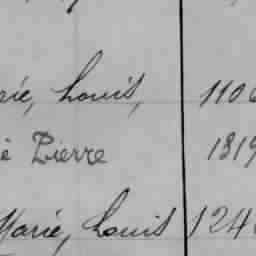 rie, Louis, 110
é Pierre 1819
Marie, Louis 124